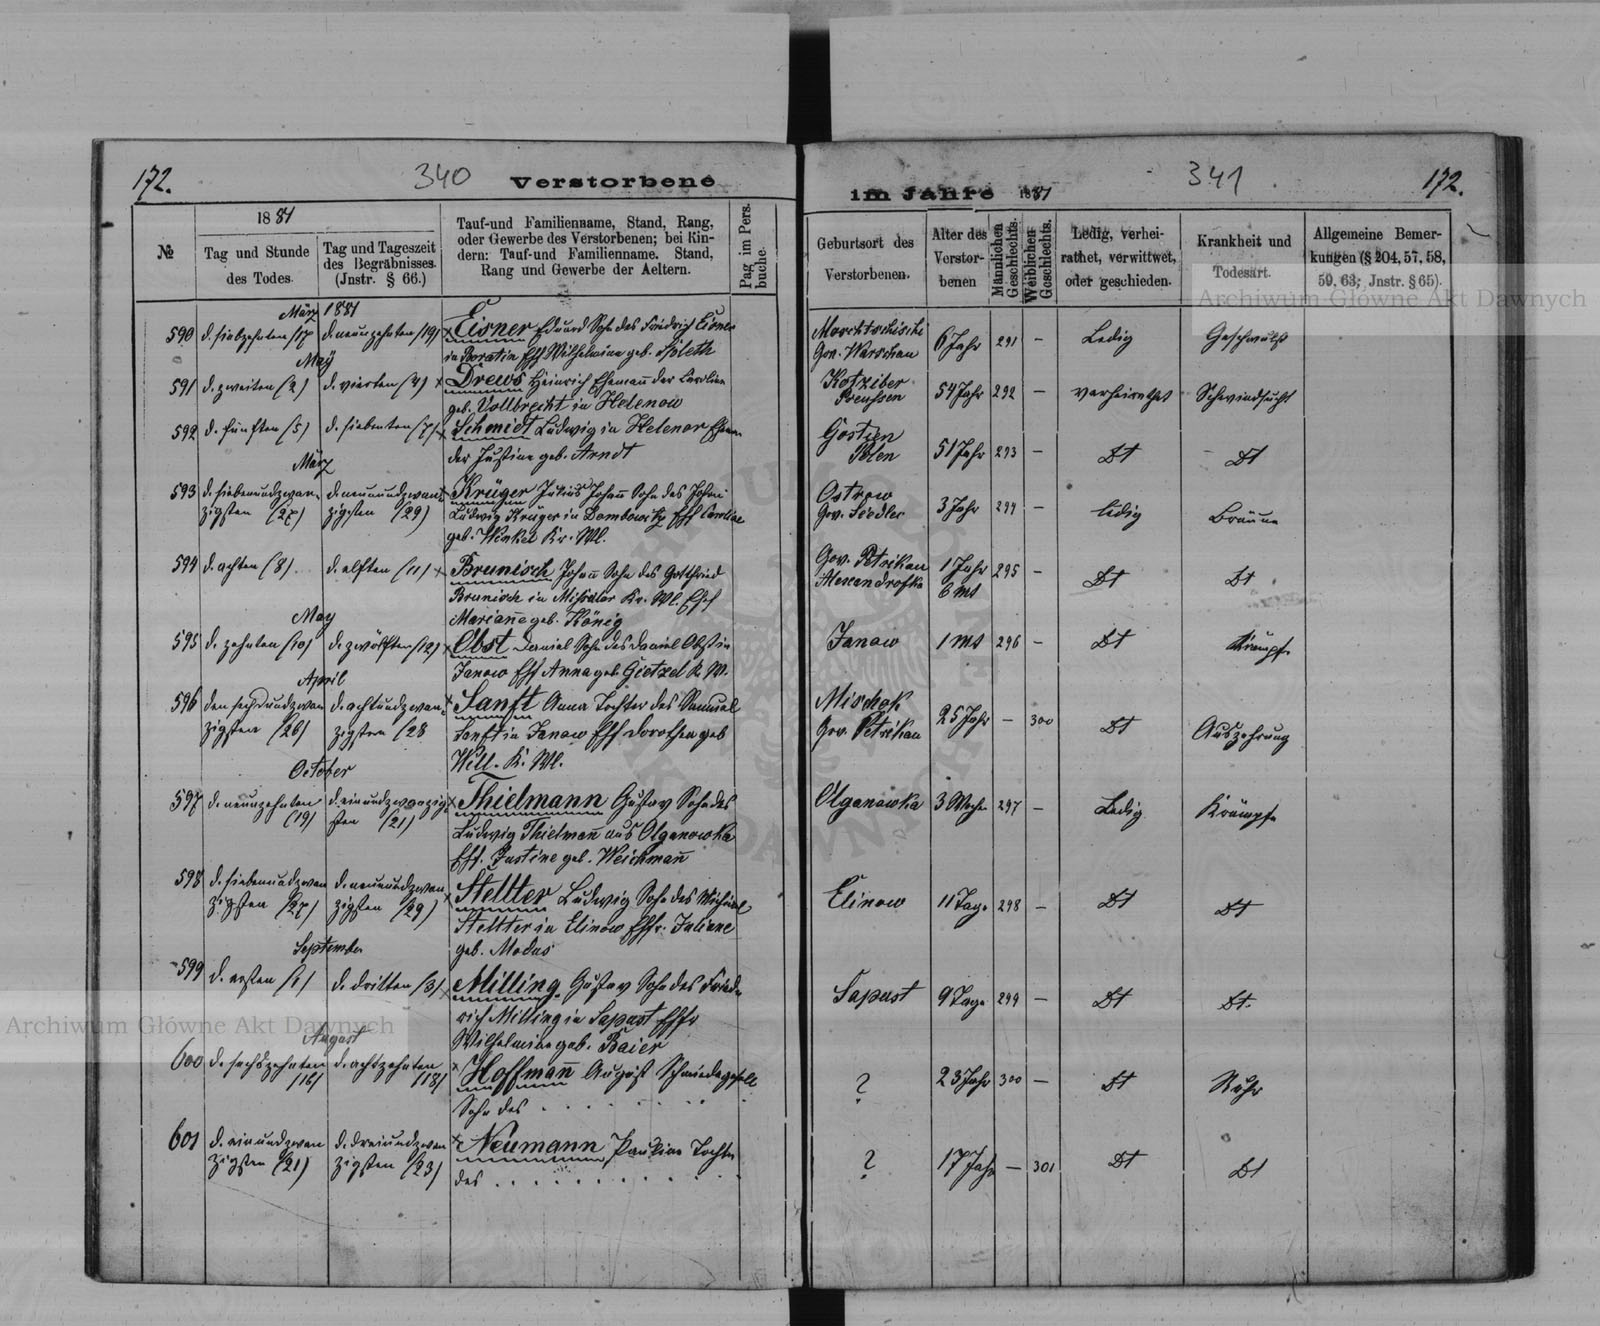 172.
340
Verstorbene
№
1881
Tag und Stunde
des Todes.
Tag und Tageszeit
des Begräbnisses.
(Jnstr. § 66.)
Tauf-und Familienname, Stand, Rang,
oder Gewerbe des Verstorbenen; bei Kin-
dern: Tauf-und Familienname. Stand,
Rang und Gewerbe der Aeltern.
Pag im Pers.
buche.
März 1881
590 d. siebzehnten (17 d. neunzehnten (19) × Eisner Eduard Sohn des Friedrich Eisner
in Boratin Eff Wilhelmine geb. Späth
May
591 d. zweiten (2) d. vierten (4) × Drews Heinrich Ehemann der Caroline
geb. Vollbrecht in Helenow
592 d. fünften (5) d. siebenten (7) × Schmidt Ludwig in Helenow Ehem
der Justine geb. Arndt
März
593 d. siebenundzwan- d. neunundzwan- × Krüger Julius Johann Sohn des Johan
zigsten (27) zigsten (29) Ludwig Krüger in Dombowitz Eff Caroline
geb. Winkel Kr. Wl.
594 d. achten (8). d. elften (11) × Brunisch Johann Sohn des Gottfried
Brunisch in Kr. Wl. Eff
Marianne geb. König
May
595 d. zehnten (10) d. zwölften (12) × Obst Daniel Sohn des Daniel Obst in
Janow Eff Anna geb. Gietzel K. W.
April
596 den sechsundzwan d. achtundzwan- × Sanft Anna Tochter des Samuel
zigsten (26) zigsten (28 Sanft in Janow Eff Dorothea geb
Will. K. Wl.
October
597 d. neunzehnten d. einundzwanzig × Thielmann Gustav Sohn des
(19) sten (21) Ludwig Thielmann aus Olganowka
Eff. Justine geb. Weichmann
598 d. siebenundzwan d. neunundzwan × Steltter Ludwig Sohn des Michael
zigsten (27) zigsten (29) Steltter in Elinow Effr. Juliane
geb. Modus
September
599 d. ersten (1) d. dritten (3) × Milling Gustav Sohn des Fried-
rich Milling in Sapust Effr
Wilhelmine geb. Baier
August
600 d. sechszehnten d. achtzehnten × Hoffmann August Schmiedegesell
(16) (18) Sohn des . . . . . . . .
601 d. einundzwan d. dreiundzwan × Neumann, Pauline Tochter
zigsten (21) zigsten (23) des . . . . . . . . . . .
im Jahre 1881
341
172.
Geburtsort des
Verstorbenen.
Alter des
Verstor-
benen
Männlichen
Geschlechts.
Weiblichen
Geschlechts.
Ledig, verhei-
rathet, verwittwet,
oder geschieden.
Krankheit und
Todesart.
Allgemeine Bemer-
kungen (§ 204, 57, 58,
59, 63; Jnstr. § 65).
Gov. Warschau 6 Jahr 291 – Ledig Geschwulst
Kotziber
Preussen 54 Jahr 292 – verheirathet Schwindsucht
Gostien
Polen 51 Jahr 293 – Dt Dt
Ostrow
Gov. Siedlec 3 Jahr 294 – ledig Bräune
Gov. Petrikau 1 Jahr 295 –
Alexandrofka 6 Mt Dt Dt
Janow 1 Mt 296 – Dt Krämpfe
Mischek
Gov. Petrikau 25 Jahr – 300 Dt Auszehrung
Olganowka 3 Woche 297 – Ledig Krämpfe
Elinow 11 Tage 298 – Dt Dt
Sapust 9 Tage 299 – Dt Dt.
? 23 Jahr 300 – Dt Ruhr
? 17 Jahr – 301 Dt Dt
Archiwum Główne Akt Dawnych
Archiwum Główne Akt Dawnych